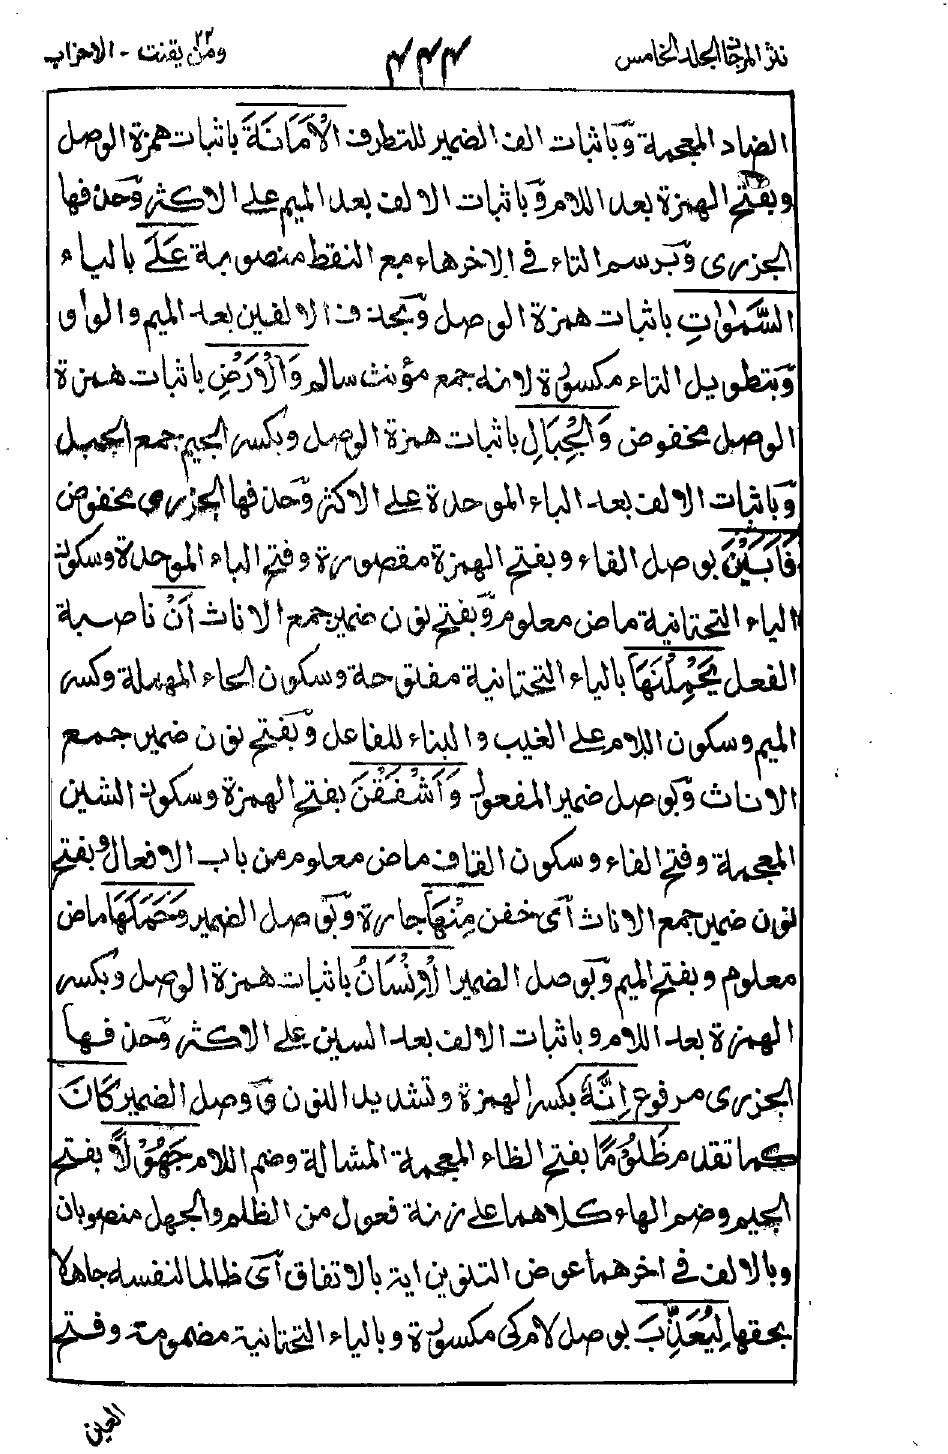 نثر المرجان المجلد الخامس
۴۴۴
ومن يقنت ۲۲ - الاحزاب
الضاد المعجمة وَبا ثبات الف الضمير للتطرف الْأَمَانَةَ باثبات همزة الوصل
وبفتح الهمزة بعد اللام وَباثبات الالف بعد الميم على الاكثر وَحذفها
الجزرى وَبرسم التاء فى الاخرهاء مع النقط منصوبة عَلَى بالياء
السَّمٰوٰتِ باثبات همزة الوصل وَبحذف الالفين بعد الميم والواو
وَبتطويل التاء مكسورة لانه جمع مؤنث سالم وَالْأَرْضِ باثبات همزة
الوصل مخفوض وَالْجِبَالِ باثبات همزة الوصل وبكسر الجيم جمع الجبل
وَباثبات الالف بعد الباء الموحدة على الاكثر وَحذفها الجزرى مخفوض
فَأَبَيْنَ بوصل الفاء وبفتح الهمزة مقصورة وفتح الباء الموحدة وسكون
الياء التحتانية ماض معلوم وَبفتح نون ضمير جمع الاناث أَنْ ناصبة
الفعل يَحْمِلْنَهَا بالياء التحتانية مفتوحة وسكون الحاء المهملة وكسر
الميم وسكون اللام على الغيب والبناء للفاعل وَبفتح نون ضمير جمع
الاناث وَبوصل ضمير المفعول وَأَشْفَقْنَ بفتح الهمزة وسكون الشين
المعجمة وفتح الفاء وسكون القاف ماض معلوم من باب الافعال وبفتح
نون ضمير جمع الاناث أى خفن مِنْهَا جارة وَبوصل الضمير وَحَمَلَهَا ماض
معلوم وبفتح الميم وَبوصل الضمير الْإِنْسَانُ باثبات همزة الوصل وبكسر
الهمزة بعد اللام وباثبات الالف بعد السين على الاكثر وَحذفها
الجزرى مرفوع إِنَّهُ بكسر الهمزة وتشديد النون وَوصل الضمير كَانَ
كما تقدم ظَلُوْمًا بفتح الظاء المعجمة المشالة وضم اللام جَهُوْلًا بفتح
الجيم وضم الهاء كلاهما على زنة فعول من الظلم والجهل منصوبان
وبالالف فى اخرهما عوض التنوين اية بالاتفاق أى ظالما لنفسه جاهلا
بحقها لِيُعَذِّبَ بوصل لام كى مكسورة وبالياء التحتانية مضمومة وفتح
العين